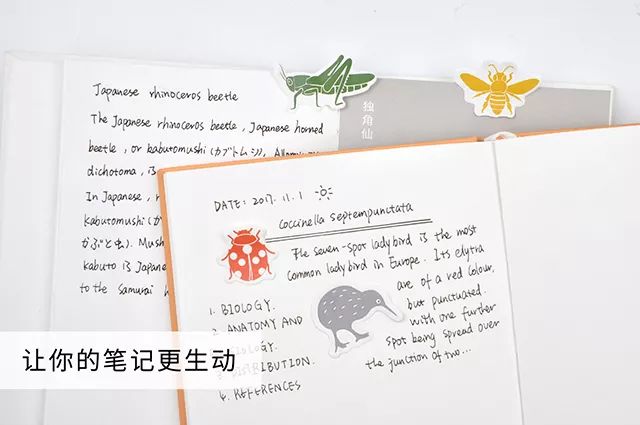 Japanese rhinoceros beetle
The Japanese rhinoceros beetle, Japanese horned
beetle, or kabutomushi (カブトムシ),
dichotoma, is
In Japanese,
kabutomushi (か
かぶと虫). Mush
kabuto is Japane
to the Samurai h
独角仙
DATE: 2017. 11. 1
Coccinella septempunctata
The seven-spot ladybird is the most
common ladybird in Europe. Its elytra
are of a red colour,
but punctuated
with one further
spot being spread over
the junction of two...
1. BIOLOGY.
2. ANATOMY AND
OLOGY.
3. DISTRIBUTION.
4. REFERENCES
让你的笔记更生动